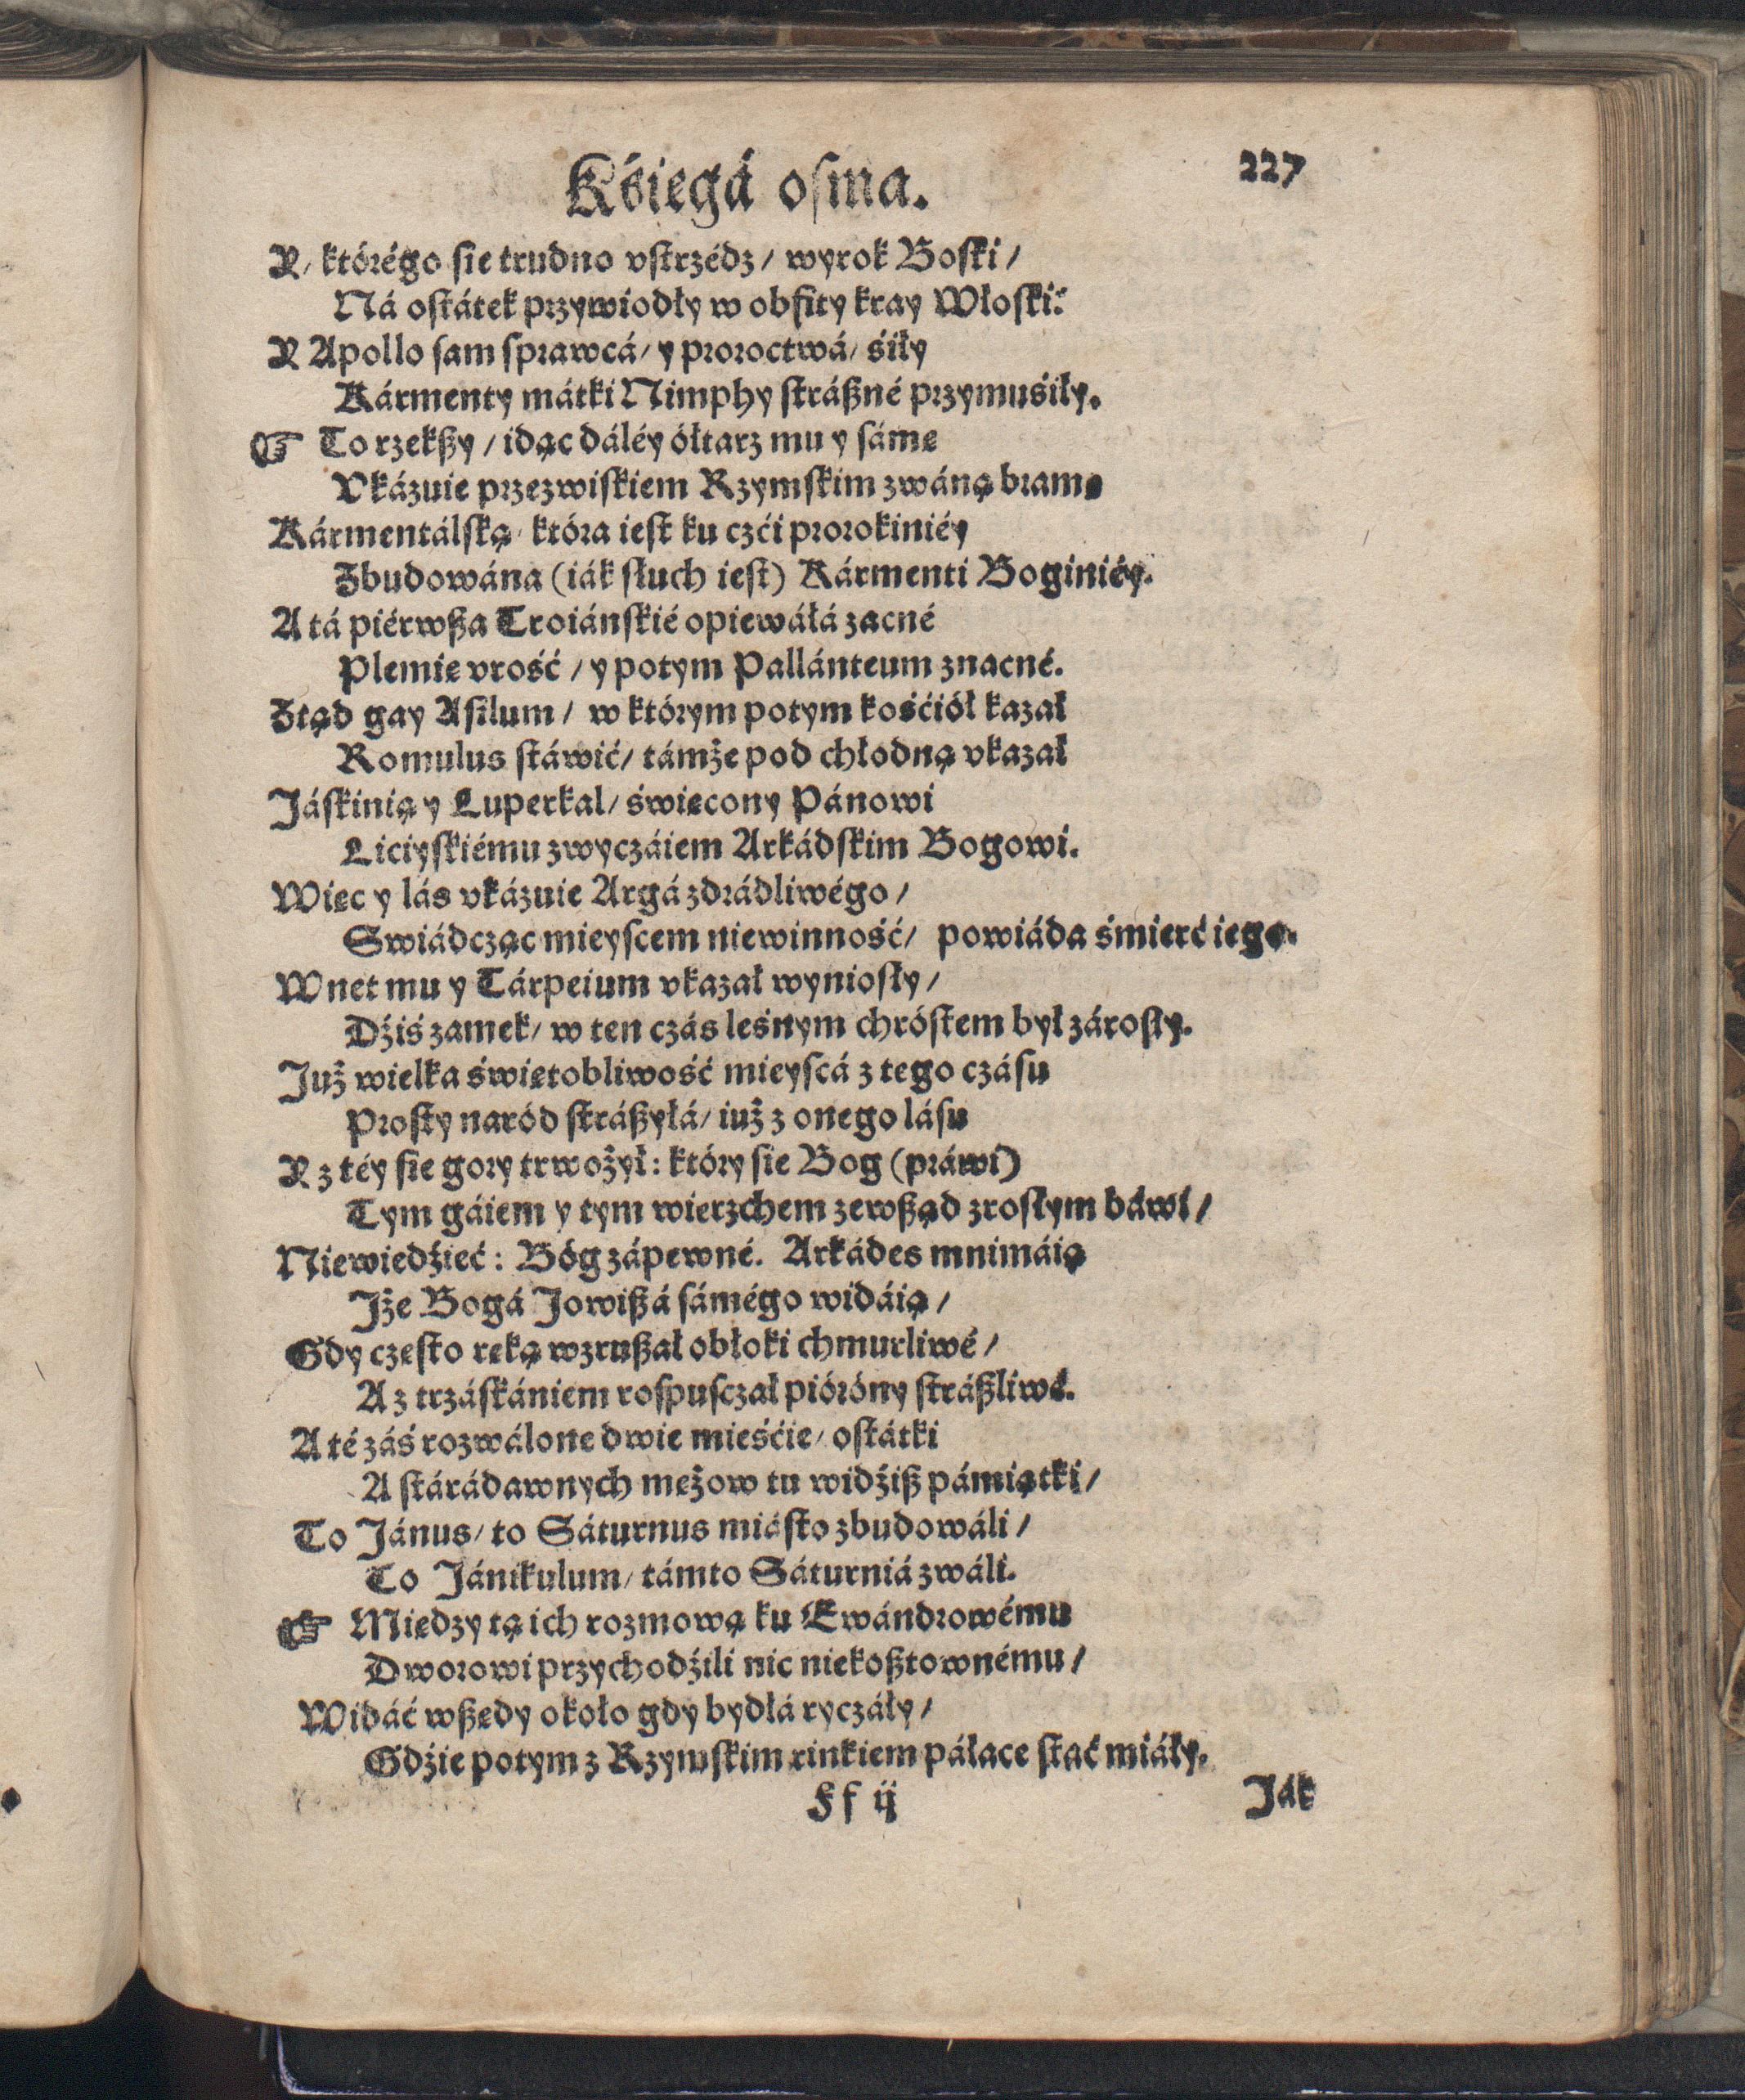 Kśięgá oſma.
227
Y, którégo ſie trudno vſtrzédz / wyrok Boſki /
Ná oſtátek przywiodły w obfity kray Włoſki:
Y Apollo ſam ſprawcá / y proroctwá / śiły
Kármenty mátki Nimphy ſtráßné przymuśiły.
☞ To rzekßy / idąc dáléy ółtarz mu y ſámę
Vkázuie przezwiſkiem Rzymſkim zwáną bramę
Kármentálſką / która ieſt ku czći prorokiniéy
Zbudowána (iák słuch ieſt) Kármenti Boginiéy.
A tá piérwßa Troiánſkié opiewáłá zacné
Plemię vrość / y potym Pallánteum znacné.
Ztąd gay Aſilum / w którym potym kośćiół kazał
Romulus ſtáwić / támże pod chłodną vkazał
Jáſkinią y Luperkal / święcony Pánowi
Liciyſkiému zwyczáiem Arkádſkim Bogowi.
Więc y lás vkázuie Argá zdrádliwégo /
Swiádcząc mieyſcem niewinność / powiáda śmierć iego.
Wnet mu y Tárpeium vkazał wyniosły /
Dźiś zamek / w ten czás leśnym chróſtem był zárosły.
Już wielka świętobliwość mieyſcá z tego czáſu
Proſty naród ſtráßyłá / iuż z onego láſu
Y z téy ſie gory trwożył: który ſie Bog (práwi)
Tym gáiem y tym wierzchem zewßąd zrosłym báwi /
Niewiedźieć: Bóg zápewné. Arkádes mnimáią
Jże Bogá Jowißá ſámégo widáią /
Gdy częſto ręką wzrußał obłoki chmurliwé /
A z trzáſkániem roſpuſczał pióróny ſtráßliwé.
A té záś rozwálone dwie mieśćie / oſtátki
A ſtárádawnych mężow tu widźiß pámiątki /
To Jánus / to Sáturnus miáſto zbudowáli /
To Jánikulum / támto Sáturniá zwáli.
☞ Miedzy tą ich rozmową ku Ewándrowému
Dworowi przychodźili nic niekoßtownému /
Widáć wßędy około gdy bydłá ryczáły /
Gdźie potym z Rzymſkim rinkiem páłace ſtać miáły.
Ff ij
Ják